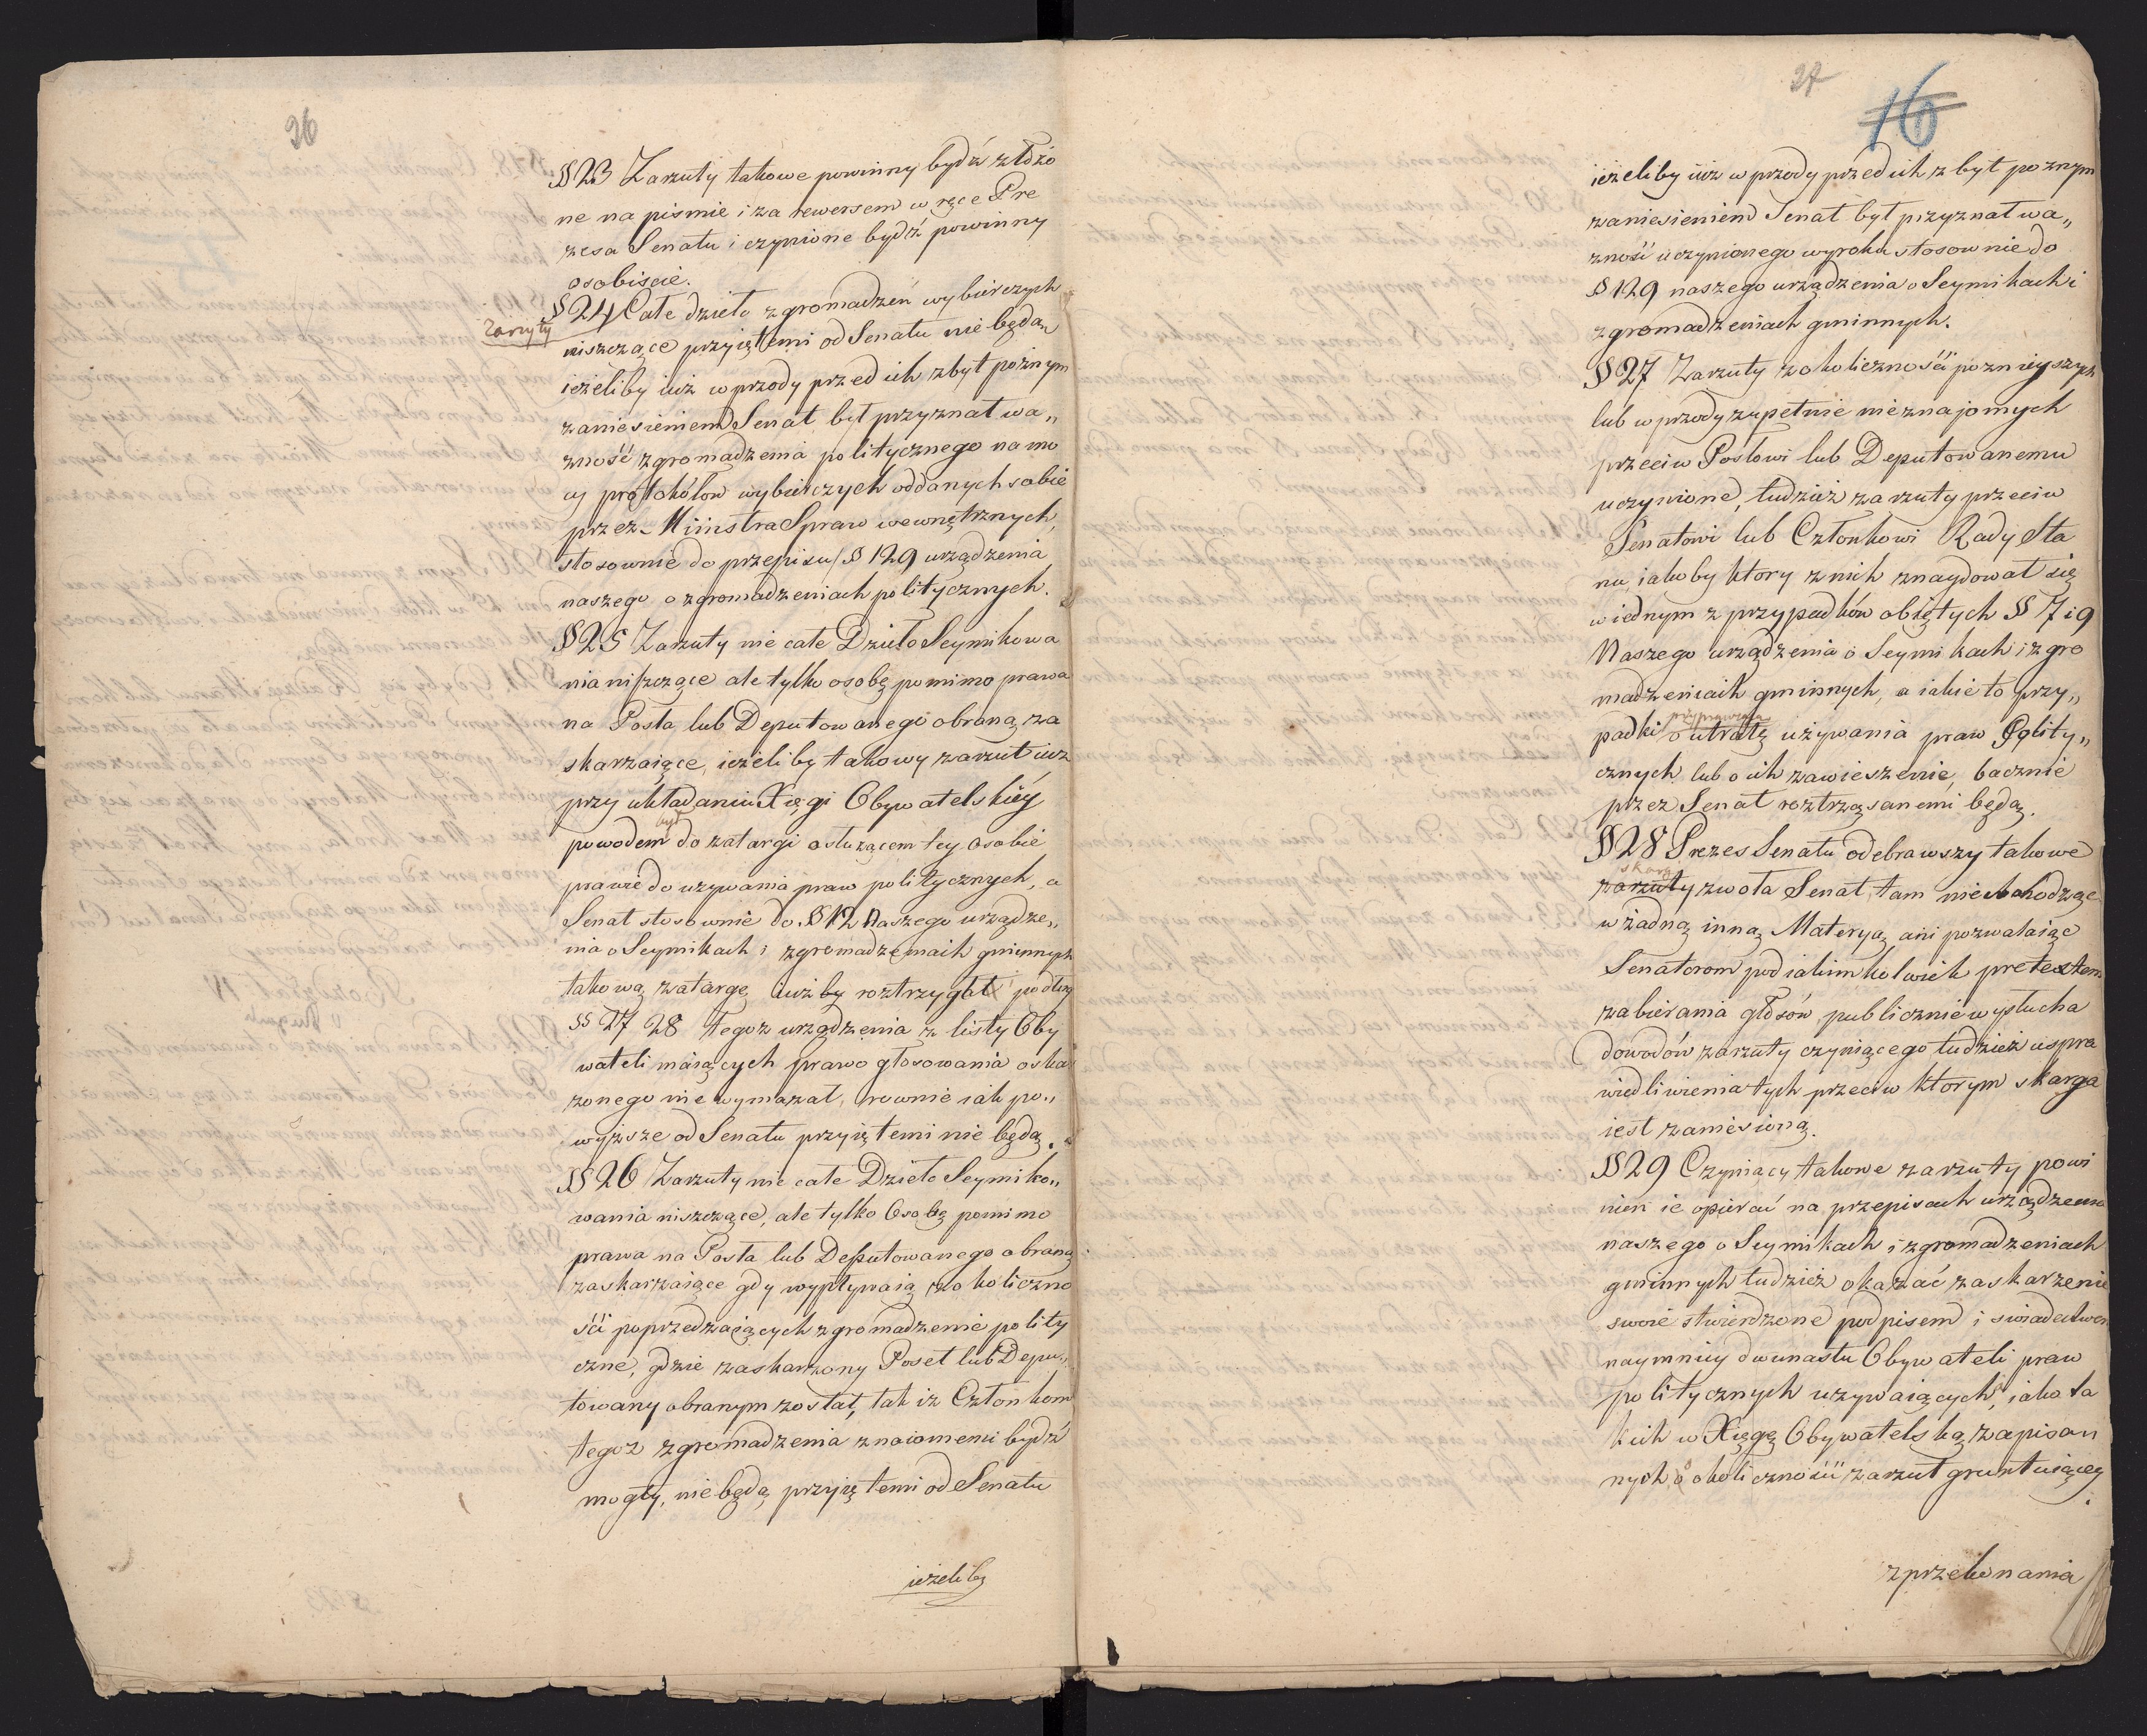 26
§ 23 Zarzuty takowe powinny bydź złożo
ne na pismie i za rewersem w ręce Pre
zesa Senatu i czynione bydź powinny
osobiście.
Zarzuty § 24 Całe dzieło zgromadzeń wybierczych
niszczące przyiętemi od Senatu nie będą,
ieżeliby iuż wprzody przed ich zbyt poźnym
zaniesieniem Senat był przyznał wa„
żność zgromadzenia politycznego na mo
cy protokółow wybierczych oddanych sobie
przez Ministra Spraw wewnętrznych,
stosownie do przepisu § 129 urządzenia
naszego o zgromadzeniach politycznych.
§ 25 Zarzuty nie całe Dzieło Seymikowa
nia niszczące ale tylko osobę pomimo prawa
na Posła lub Deputowanego obraną za
skarzaiące, ieżeliby takowy zarzut iuż
przy układaniu Xięgi Obywatelskiéy
był
powodem do zatargi o służącem tey osobie
prawie do używania praw politycznych, a
Senat stosownie do § 12 Naszego urządze„
nia o Seymikach i zgromadzeniach gminnych
takową zatargę iuż by roztrzygał podług
§§ 27 28 tegoż urządzenia z listy Oby
wateli maiących prawo głosowania oskar
żonego nie wymazał, rownie iak po„
wyższe od Senatu przyiętemi nie będą.
§ 26 Zarzuty nie całe Dzieło Seymiko„
wania niszczące, ale tylko Osobę pomimo
prawa na Posła lub Deputowanego obraną
zaskarzaiące gdy wypływaią z okoliczno
ści poprzedzaiących zgromadzenie polity
czne, gdzie zaskarżony Poseł lub Depu„
towany obranym został, tak iż Członkom
tegoż zgromadzenia znaiomemi bydź
mogły, nie będą przyiętemi od Senatu
ieżeliby
27
16
ieżeliby iuż w przody przed ich zbyt poznym
zaniesieniem Senat był przyznał wa„
żność uczynionego wyroku stosownie do
§ 129 naszego urządzenia o Seymikach i
zgromadzeniach gminnych.
§ 27 Zarzuty z okoliczności poznieyszych
lub w przody zupełnie nieznajomych
przeciw Posłowi lub Deputowanemu
uczynione, tudzież zarzuty przeciw
Senatowi lub Członkowi Rady Sta
nu, iakoby ktory z nich znaydował się
w iednym z przypadków obiętych § 7 i 9
Naszego urządzenia o Seymikach i zgro
madzeniach gminnych, a iakie to przy„
padki o utratę używania praw Polity„
cznych lub o ich zawieszenie, bacznie
przez Senat roztrząsanemi będą.
§ 28 Prezes Senatu odebrawszy takowe
skargi
zarzuty zwoła Senat, tam nie wchodząc
w żadną inną Materyą, ani pozwalaiąc
Senatorom pod iakimkolwiek pretextem
zabierania głosów, publicznie wysłucha
dowodów zarzuty czyniącego tudzież uspra
wiedliwienia tych przeciw ktorym skarga
iest zaniesioną.
§ 29 Czyniący takowe zarzuty powi
nien ie opierać na przepisach urządzenia
naszego o Seymikach i zgromadzeniach
gminnych tudzież okazać zaskarzenie
swoie stwierdzone podpisem i swiadectwem
naymniey dwunastu Obywateli praw
politycznych używaiących, iako ta
kich w Xięgę Obywatelską zapisan
nych o okoliczności zarzut gruntuiącey
z przekonania